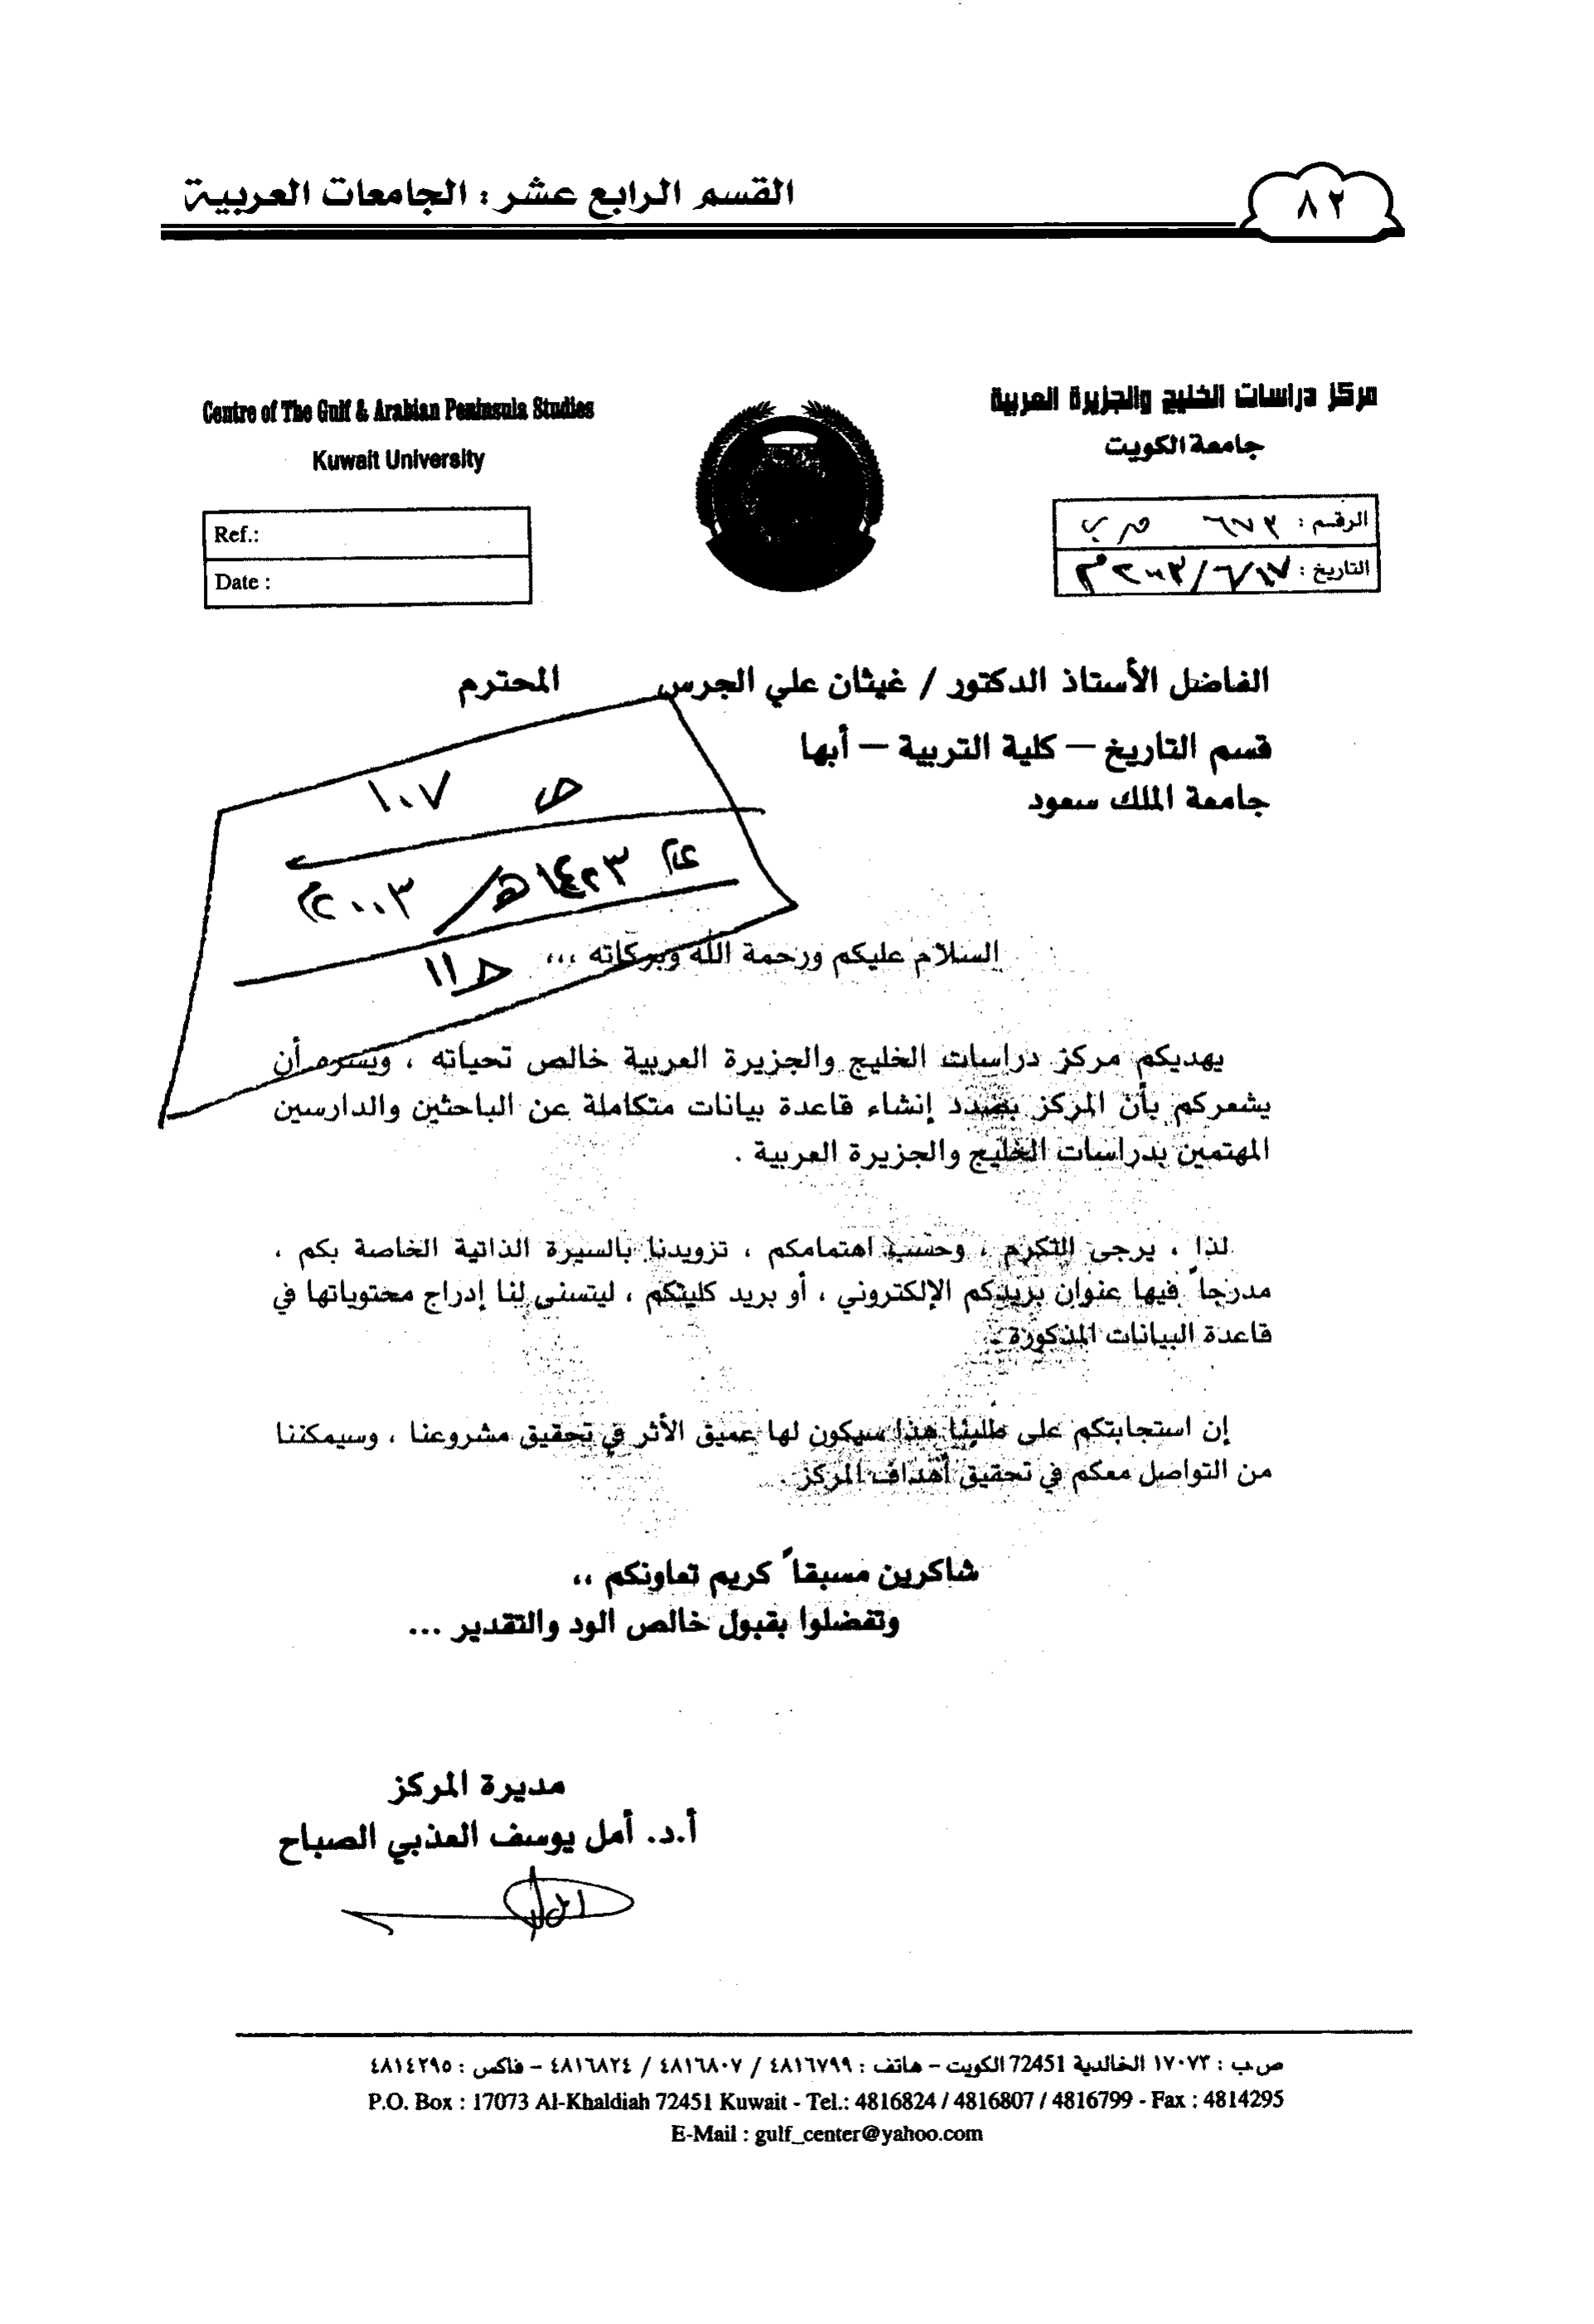 ٨٢
القسم الرابع عشر : الجامعات العربية
مركز دراسات الخليج والجزيرة العربية
جامعة الكويت
Centre of The Gulf & Arabian Peninsula Studies
Kuwait University
الرقم : ٦٧٣
التاريخ : ١٧/٦/٢٠٠٣م
Ref.:
Date :
الفاضل الأستاذ الدكتور / غيثان علي الجرس المحترم
قسم التاريخ – كلية التربية – أبها
جامعة الملك سعود
ص ١٠٧
١٤٢٣هـ/ ٢٠٠٣م
السلام عليكم ورحمة الله وبركاته ،،،
يهديكم مركز دراسات الخليج والجزيرة العربية خالص تحياته ، ويسره أن
يشعركم بأن المركز بصدد إنشاء قاعدة بيانات متكاملة عن الباحثين والدارسين
المهتمين بدراسات الخليج والجزيرة العربية .
لذا ، يرجى التكرم ، وحسب اهتمامكم ، تزويدنا بالسيرة الذاتية الخاصة بكم ،
مدرجاً فيها عنوان بريدكم الإلكتروني ، أو بريد كليتكم ، ليتسنى لنا إدراج محتوياتها في
قاعدة البيانات المذكورة .
إن استجابتكم على طلبنا هذا سيكون لها عميق الأثر في تحقيق مشروعنا ، وسيمكننا
من التواصل معكم في تحقيق أهداف المركز .
شاكرين مسبقاً كريم تعاونكم ،،
وتفضلوا بقبول خالص الود والتقدير ...
مديرة المركز
أ.د. أمل يوسف العذبي الصباح
ص.ب : ١٧٠٧٣ الخالدية 72451 الكويت – هاتف : ٤٨١٦٧٩٩ / ٤٨١٦٨٠٧ / ٤٨١٦٨٢٤ – فاكس : ٤٨١٤٢٩٥
P.O. Box : 17073 Al-Khaldiah 72451 Kuwait - Tel.: 4816824 / 4816807 / 4816799 - Fax : 4814295
E-Mail : gulf_center@yahoo.com